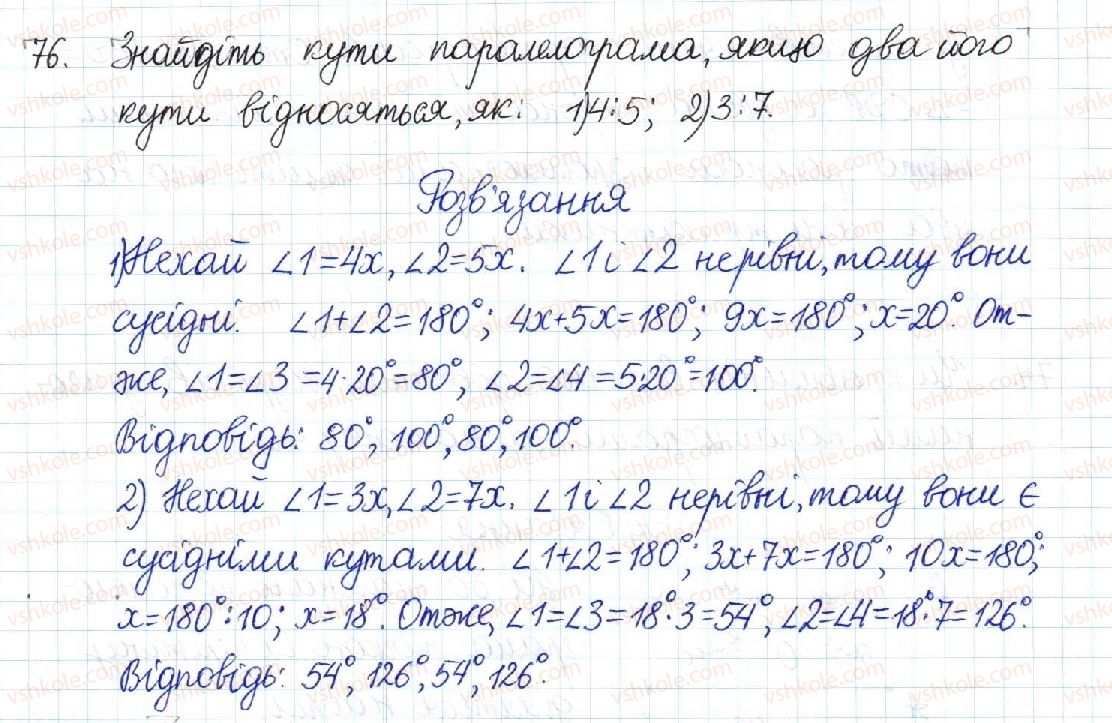 76. Знайдіть кути паралелограма, якщо два його
кути відносяться, як: 1) 4:5; 2) 3:7.
Розв'язання
1) Нехай ∠1=4x, ∠2=5x. ∠1 і ∠2 нерівні, тому вони
сусідні. ∠1+∠2=180°; 4x+5x=180°; 9x=180°; x=20°. От-
же, ∠1=∠3=4·20°=80°, ∠2=∠4=5·20°=100°.
Відповідь: 80°, 100°, 80°, 100°.
2) Нехай ∠1=3x, ∠2=7x. ∠1 і ∠2 нерівні, тому вони є
сусідніми кутами. ∠1+∠2=180°; 3x+7x=180°; 10x=180°;
x=180°:10; x=18°. Отже, ∠1=∠3=18°·3=54°, ∠2=∠4=18°·7=126°.
Відповідь: 54°, 126°, 54°, 126°.